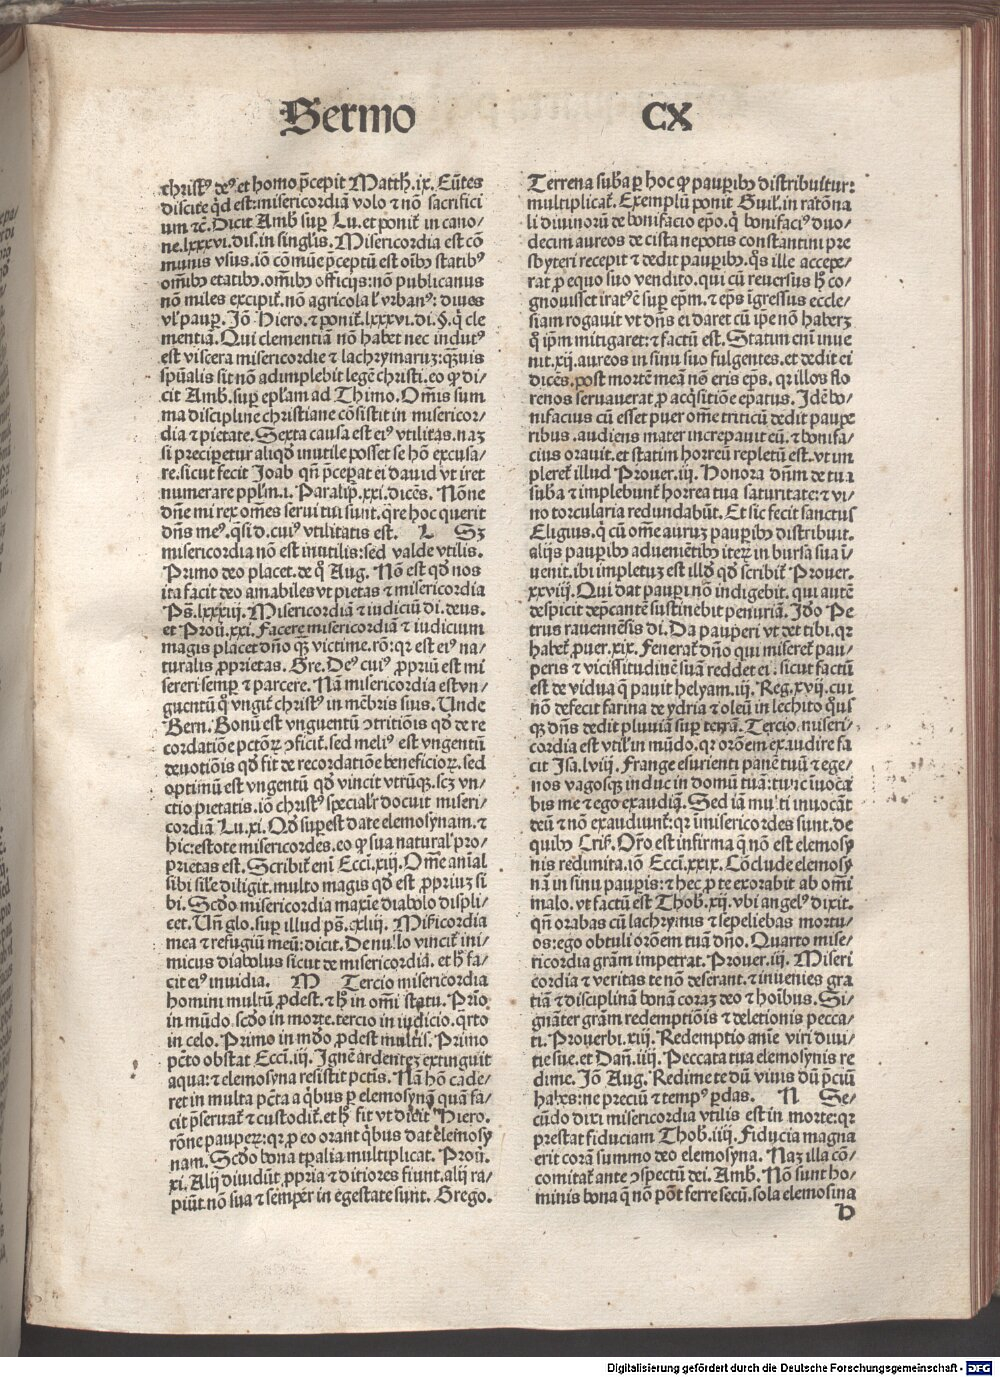 Sermo CX
christꝰ deꝰ et homo p̄cepit Matth. ix. Eūtes
discite qd̄ est: misericordiā volo ⁊ nō sacrifici
um ⁊c̄. Dicit Amb̄ suꝑ Lu. et ponit̄ in cano/
ne. lxxxvi. dis. in singl̄is. Misericordia est cō
munis vsus. iō cōmūe p̄ceptū est oīb̄ statibꝰ
om̄ibꝰ etatibꝰ. om̄ibꝰ officijs: nō publicanus
nō miles excipit̄. nō agricola l̓ vrbanꝰ: diues
vl̓ pauꝑ. Jō Hiero. ⁊ ponit̄. lxxxvi. di. §. q̇ cle
mentia. Qui clementiā non habet nec indutꝰ
est viscera misericordie ⁊ lachrymaruꝫ: qꝫuis
spūalis sit nō adimplebit legē christi. eo ꝙ di/
cit Amb̄. suꝑ ep̄lam ad Thimo. Om̄is sum
ma discipline christiane cōsistit in misericor/
dia ⁊ pietate. Sexta causa est eiꝰ vtilitas. naꝫ
si preciperetur aliqd̄ inutile posset se hō excusa/
re. sicut fecit Joab qn̄ p̄cepat ei dauid vt iret
numerare ppl̄m. i. Paralip̄. xxi. dicēs. Nōne
dn̄e mi rex om̄es serui tui sunt. q̄re hoc querit
dn̄s meꝰ. q̄si d. cuiꝰ vtilitatis est. L Sꝫ
misericordia nō est inutilis: sed valde vtilis.
Primo deo placet. de q̊ Aug. Nō est qd̄ nos
ita facit deo amabiles vt pietas ⁊ misericordia
Ps̄. lxxxiij. Misericordiā ⁊ iudiciū di. deus.
et Prou̓. xxi. Facere misericordiā ⁊ iudicium
magis placet dn̄o qꝫ victime. rō: qr est eiꝰ na/
turalis ꝓprietas. Gre. Deꝰ cuiꝰ ꝓpriū est mi
sereri semꝑ ⁊ parcere. Nā misericordia est vn/
guentū q̊ vngit̄ christꝰ in mēbris suis. Unde
Bern. Bonū est vnguentū ↄtritiōis qd̄ de re
cordatiōe pctōꝝ ↄficit̄. sed meliꝰ est vngentū
deuotiōis qd̄ fit de recordatiōe beneficioꝝ. sed
optimū est vngentū qd̄ vincit vtrūqꝫ. scꝫ vn/
ctio pietatis. iō christꝰ specialr̄ docuit miseri/
cordiā Lu. xi. Qd̄ suꝑest date elemosynam. ⁊
hic: estote misericordes. eo ꝙ sua natural̓ pro/
prietas est. Scribit̄ eni Ecci. xiij. Om̄e aīal
sibi sil̄e diligit. multo magis qd̄ est ꝓpriuꝫ si
bi. Scd̄o misericordia maxie diabolo displi/
cet. Un̄ glo. suꝑ illud ps̄. cxliij. Misicordia
mea ⁊ refugiū meū: dicit. De nullo vincit̄ ini/
micus diabolus sicut de misericordia. et h̄ fa/
cit eiꝰ inuidia. M Tercio misericordia
homini multū ꝓdest. ⁊ h̄ in om̄i statu. Prīo
in mūdo. scd̄o in morte. tercio in iudicio. q̄rto
in celo. Primo in mūdo ꝓdest multis. Primo
pctō obstat Ecci. iij. Ignē ardenteꝫ extinguit
aqua: ⁊ elemosyna resistit pctīs. Nā hō cade/
ret in multa pctā a qbus ꝑ elemosynā quā fa/
cit p̄seruat̄ ⁊ custodit̄. et h̄ fit vt dicit Hiero.
rōne pauperꝫ: qr ꝓ eo orant qbus dat elemosy
nam. Scd̄o bona tp̄alia multiplicat. Prou̓.
xi. Alij diuidūt ꝓpria ⁊ ditiores fiunt. alij ra/
piūt nō sua ⁊ semper in egestate sunt. Grego.
Terrena sub̄a ꝑ hoc ꝙ pauꝑibꝰ distribuitur:
multiplicat̄. Exemplū ponit Guil̓. in ratōna
li diuinorū de bonifacio ep̄o. q̇ bonifaciꝰ duo/
decim aureos de cista nepotis constantini pre
sbyteri recepit ⁊ dedit pauꝑibꝰ. q̄s ille accepe/
rat ꝓ equo suo vendito. qui cū reuersus h̄ co/
gnouisset iratꝰ ē suꝑ ep̄m. ⁊ ep̄s īgressus eccle/
siam rogauit vt dn̄s ei daret cū ip̄e nō haberꝫ
q̊ ip̄m mitigaret: ⁊ factū est. Statim enī inue
nit. xij. aureos in sinu suo fulgentes. et dedit ei
dicēs. post mortē meā nō eris ep̄s. qr illos flo
renos seruauerat ꝓ acq̇sitiōe ep̄atus. Idē bo/
nifacius cū esset puer om̄e triticū dedit paupe
ribus. audiens mater increpauit eū. ⁊ bonifa/
cius orauit. et statim horreū repletū est. vt im
pleret̄ illud Prouer. iij. Honora dn̄m de tua
sub̄a ⁊ implebunt̄ horrea tua saturitate: ⁊ vi/
no torcularia redundabūt. Et sic fecit sanctus
Eligius. q̇ cū om̄e auruꝫ pauꝑibꝰ distribuit.
alijs pauꝑibꝰ aduenietibꝰ iteꝝ in bursa sua ī
uenit. ibi impletuꝫ est illd̄ qd̄ scribit̄ Prouer.
xxviij. Qui dat pauꝑi nō indigebit. qui autē
despicit dep̄cantē sustinebit penuriā. Ido Pe
trus rauennēsis di. Da pauperi vt det tibi. qr
habet̄ ꝓuer. xix. Fenerat̄ dn̄o qui miseret̄ pau/
peris ⁊ vicissitudinē suā reddet ei. sicut factū
est de vidua q̄ pauit helyam. iij. Reg. xvij. cui
nō defecit farina de ydria ⁊ oleū in lechito q̊us
qꝫ dn̄s dedit pluuiā suꝑ terrā. Tercio miseri/
cordia est vtil̓ in mūdo. qr orōem exaudire fa
cit Isa. lviij. Frange esurienti panē tuū ⁊ ege/
nos vagosqꝫ induc in domū tuā: tunc īuoca
bis me ⁊ ego exaudiā. Sed iā multi inuocāt
deū ⁊ nō exaudiunt̄: qr īmisericordes sunt. de
quibꝰ Crisͥ. Or̄o est infirma q̄ nō est elemosy
nis redimita. iō Ecci. xxix. Cōclude elemosy
nā in sinu pauꝑis: ⁊ hec ꝓ te exorabit ab om̄i
malo. vt factū est Thob. xij. vbi angelꝰ dixit.
qn̄ orabas cū lachrymis ⁊ sepeliebas mortu/
os: ego obtuli orōem tuā dn̄o. Quarto mise/
ricordia gr̄am impetrat. Prouer. iij. Miseri
cordia ⁊ veritas te nō deserant. ⁊ inuenies gra
tiā ⁊ disciplinā bonā coraꝫ deo ⁊ hoībus. Si/
gnāter gr̄am redemptiōis ⁊ deletionis pecca/
ti. Prouerbi. xiij. Redemptio anīe viri diui/
tie sue. et Dan̄. iiij. Peccata tua elemosynis re
dime. Jō Aug. Redime te dū viuis dū p̄ciū
habes: ne preciū ⁊ tempꝰ ꝑdas. N Se/
cūdo dixi misericordia vtilis est in morte: qr
prestat fiduciam Thob. iiij. Fiducia magna
erit corā summo deo elemosyna. Naꝫ illa cō/
comitat̄ ante ↄspectū dei. Amb̄. Nō sunt ho/
minis bona q̄ nō pōt ferre secū. sola elemosina
D
Digitalisierung gefördert durch die Deutsche Forschungsgemeinschaft - DFG